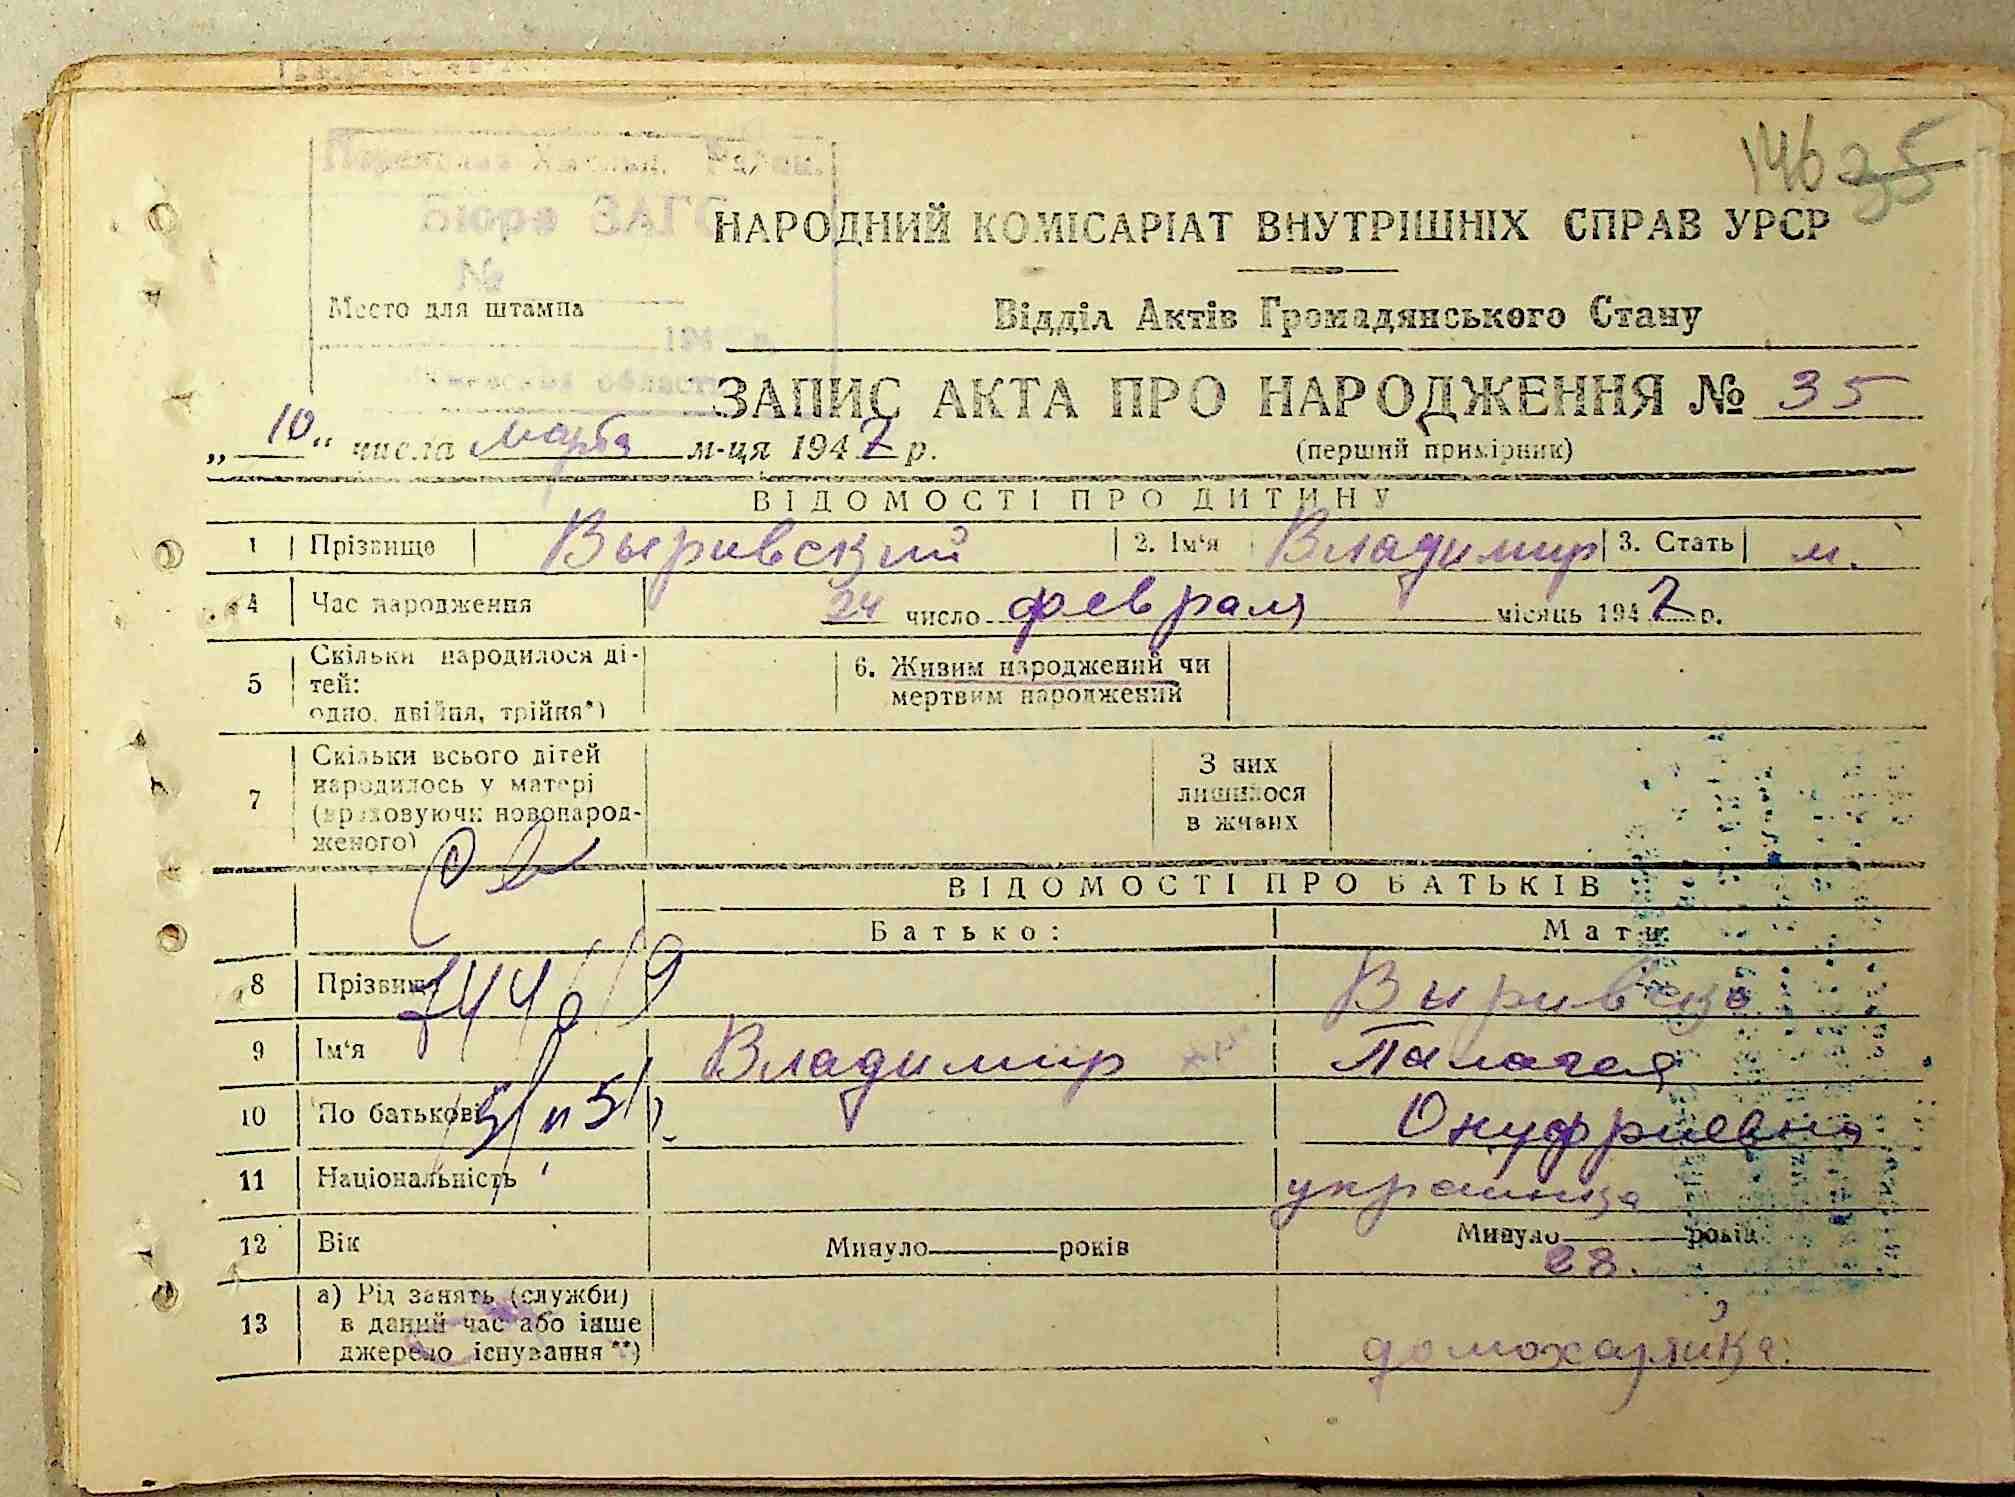 146 35
НАРОДНИЙ КОМІСАРІАТ ВНУТРІШНІХ СПРАВ УРСР
№
Место для штампа
Відділ Актів Громадянського Стану
ЗАПИС АКТА ПРО НАРОДЖЕННЯ № 35
„10“ числа марта м-ця 1947 р.
(перший примірник)
ВІДОМОСТІ ПРО ДИТИНУ
1 Прізвище Выровский 2. Ім‘я Владимир 3. Стать м.
4 Час народження 24 число февраля місяць 1947 р.
5 Скільки народилося ді-
тей:
одно, двійня, трійня*)
6. Живим народжений чи
мертвим народжений
7 Скільки всього дітей
народилось у матері
(враховуючи новонарод-
женого)
З них
лишилося
в живих
ВІДОМОСТІ ПРО БАТЬКІВ
Батько: Мати:
8 Прізвище
9 Ім‘я Владимир Палагея
10 По батькові Онуфриевна
11 Національність украинка
12 Вік Минуло років Минуло 28. років
13 а) Рід занять (служби)
в даний час або інше
джерело існування **)
домохазяйка.